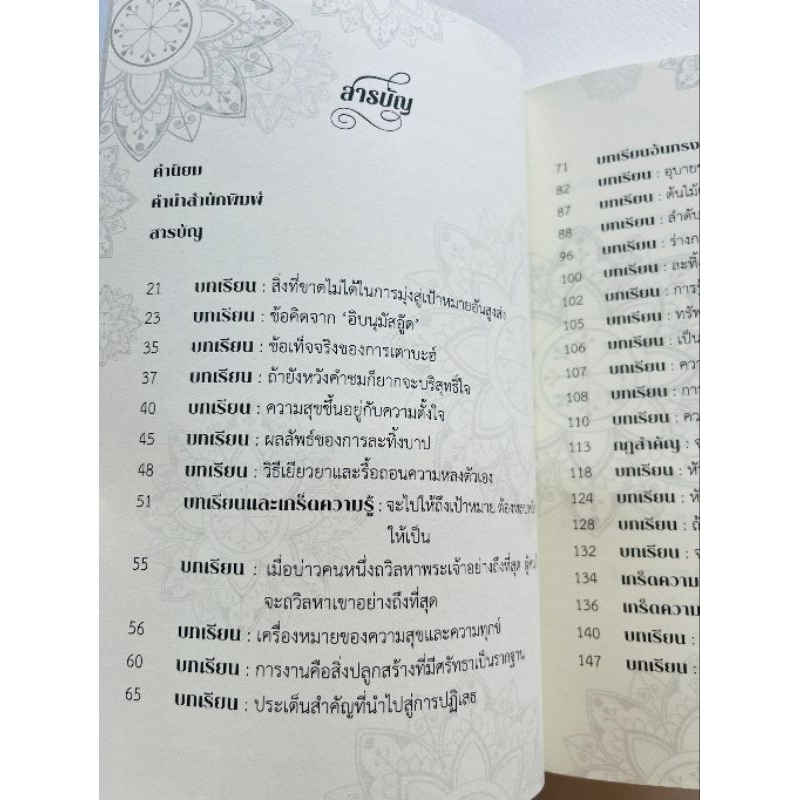 สารบัญ
คำนิยม
คำนำสำนักพิมพ์
สารบัญ
21 บทเรียน : สิ่งที่ขาดไม่ได้ในการมุ่งสู่เป้าหมายอันสูงส่ง
23 บทเรียน : ข้อคิดจาก ‘อิบนุมัสอู๊ด’
35 บทเรียน : ข้อเท็จจริงของการเตาบะฮ์
37 บทเรียน : ถ้ายังหวังคำชมก็ยากจะบริสุทธิ์ใจ
40 บทเรียน : ความสุขขึ้นอยู่กับความตั้งใจ
45 บทเรียน : ผลลัพธ์ของการละทิ้งบาป
48 บทเรียน : วิธีเยียวยาและรื้อถอนความหลงตัวเอง
51 บทเรียนและเกร็ดความรู้ : จะไปให้ถึงเป้าหมาย
ให้เป็น
55 บทเรียน : เมื่อบ่าวคนหนึ่งถวิลหาพระเจ้าอย่างถึงที่สุด
จะถวิลหาเขาอย่างถึงที่สุด
56 บทเรียน : เครื่องหมายของความสุขและความทุกข์
60 บทเรียน : การงานคือสิ่งปลูกสร้างที่มีศรัทธาเป็นรากฐาน
65 บทเรียน : ประเด็นสำคัญที่นำไปสู่การปฏิเสธ
71 บทเรียนอันทรง
82 บทเรียน : อุบาย
87 บทเรียน : ต้นไม้
88 บทเรียน : ลำดับ
96 บทเรียน : ร่าง
100 บทเรียน : ละทิ้ง
102 บทเรียน : การ
105 บทเรียน : ทรัพ
106 บทเรียน : เป็น
107 บทเรียน : ความ
108 บทเรียน : กา
110 บทเรียน : คว
113 กฎสำคัญ : จ
118 บทเรียน : หั
124 บทเรียน : หั
128 บทเรียน : ถ้
132 บทเรียน : จ
134 เกร็ดความ
136 เกร็ดความ
140 บทเรียน :
147 บทเรียน :